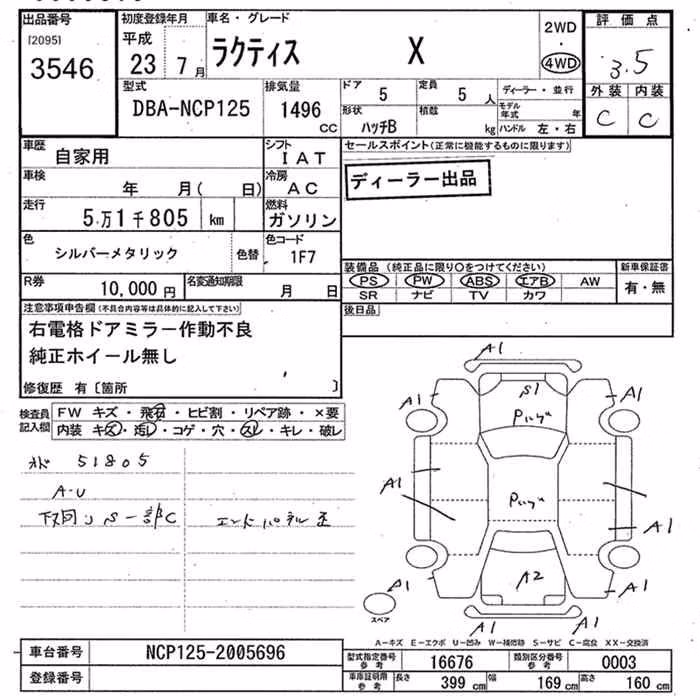 出品番号
[2095]
3546
初度登録年月
平成
23 7月
車名・グレード
ラクティス X
2WD
・
4WD
評価点
3.5
外装 内装
C C
型式
DBA-NCP125
排気量
1496
CC
ドア
5
定員
5 人
ディーラー・並行
モデル年式 年
形状
ハッチB
積載
kg
ハンドル 左・右
車歴
自家用
シフト
IAT
セールスポイント(正常に機能するものに限ります)
ディーラー出品
車検
年 月( 日)
冷房
AC
走行
5万1千805 km
燃料
ガソリン
色
シルバーメタリック
色替
色コード
1F7
装備品(純正品に限り○をつけてください)
PS PW ABS エアB AW
SR ナビ TV カワ
新車保証書
有・無
R券
10,000円
名変通知期限
月 日
後日品
注意事項申告欄(不具合内容等は具体的に記入して下さい)
右電格ドアミラー作動不良
純正ホイール無し
修復歴 有〔箇所 〕
検査員
記入欄
FW キズ・飛石・ヒビ割・リペア跡・×要
内装 キズ・汚レ・コゲ・穴・スレ・キレ・破レ
51805
A-U
S一部C
エンドパネル歪
A1
A1
S1
A1
A1
A1
A1
A1
A2
A1
A1
A1
スペア
A-キズ E-エクボ U-凹み W-補修跡 S-サビ C-腐食 XX-交換済
車台番号
NCP125-2005696
登録番号
型式指定番号
参考
16676
類別区分番号
参考
0003
車庫証明用
参考
長さ
399 cm
幅
169 cm
高さ
160 cm